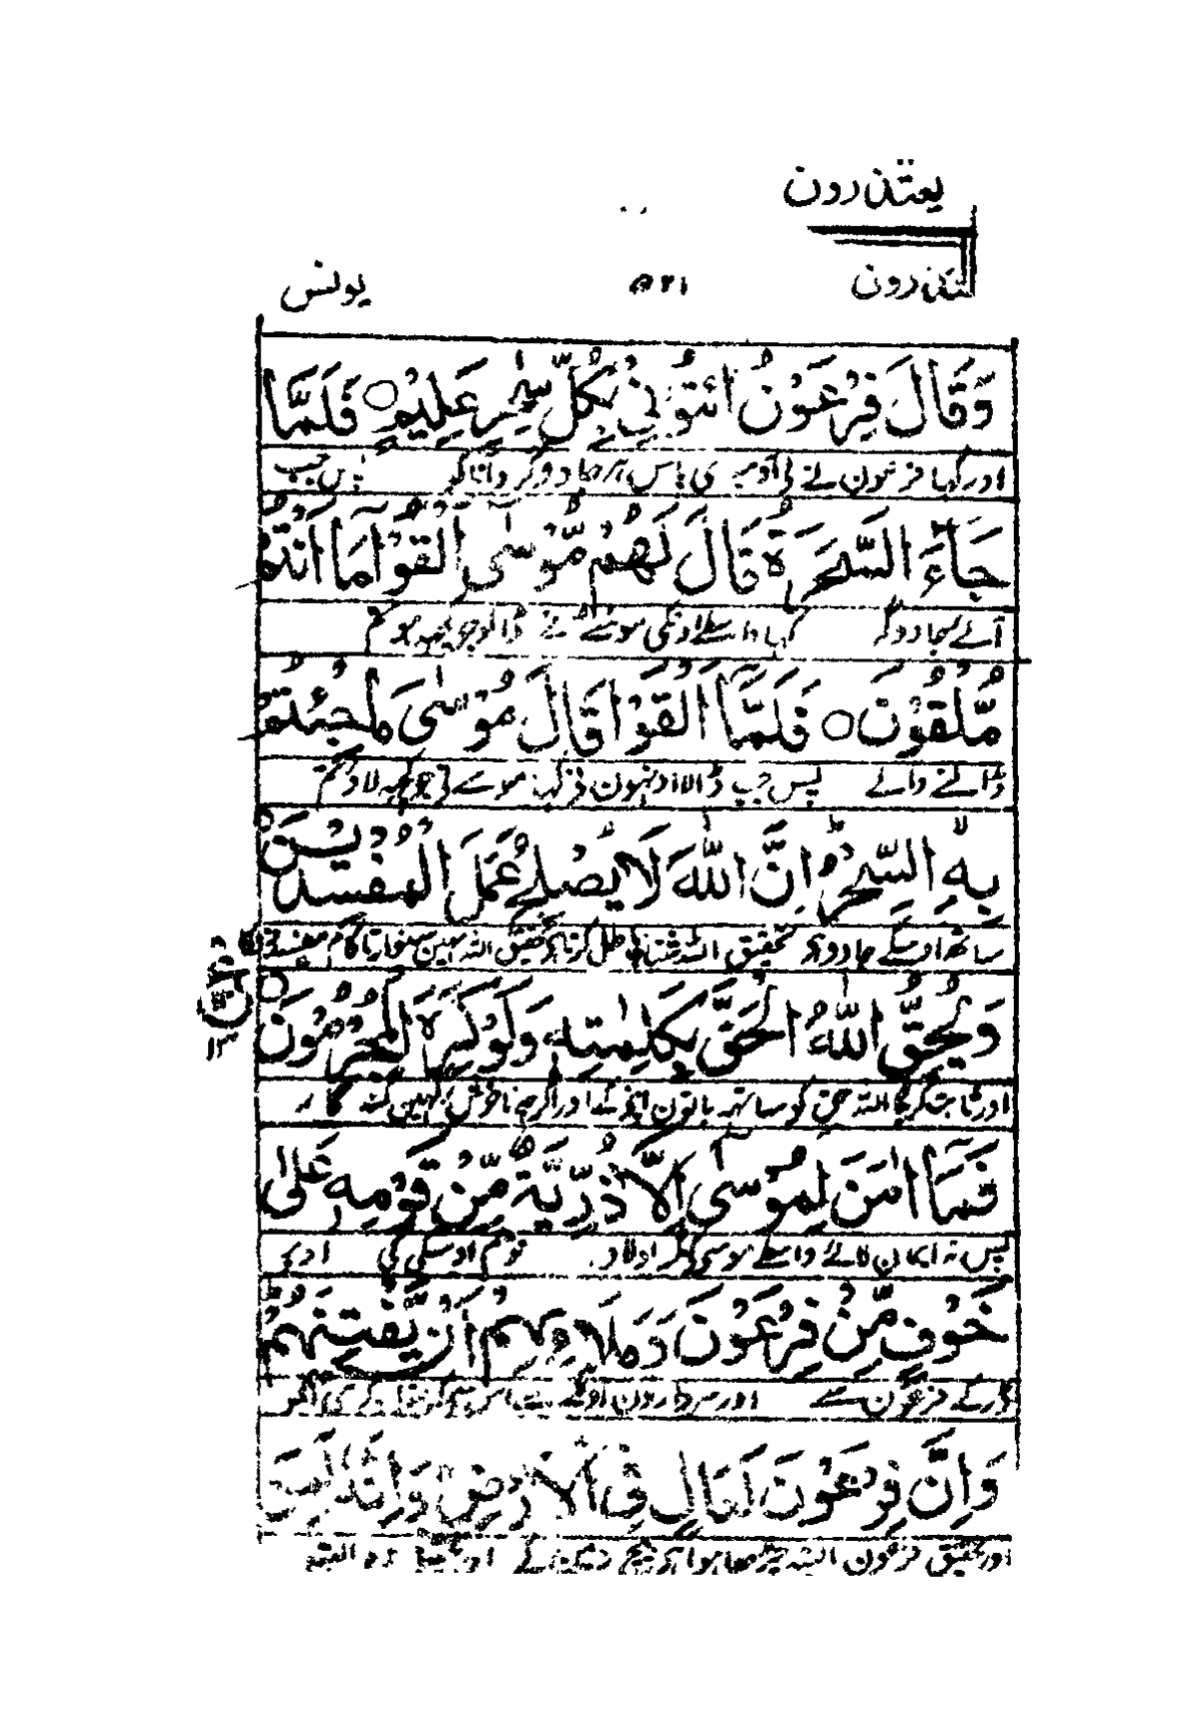 یعتذرون
یونس ۵۲۱ یعتذرون
وَقَالَ فِرْعَوْنُ ائْتُوْنِیْ بِكُلِّ سٰحِرٍ عَلِیْمٍ ○ فَلَمَّا
اور کہا فرعون نے لی آؤ میری پاس ہر جادوگر دانا کو پس جب
جَآءَ السَّحَرَةُ قَالَ لَهُمْ مُّوْسٰۤی اَلْقُوْا مَاۤ اَنْتُمْ
آئے جادوگر کہا واسطے اونکی موسٰے نے ڈالو جو کچھہ ہو تم
مُّلْقُوْنَ ○ فَلَمَّاۤ اَلْقَوْا قَالَ مُوْسٰی مَا جِئْتُمْ
ڈالنے والے پس جب ڈالا اونہون نی کہا موسے نی جو کچھہ لاؤ تم
بِهِ السِّحْرُ اِنَّ اللّٰهَ سَیُبْطِلُهٗ اِنَّ اللّٰهَ لَا یُصْلِحُ عَمَلَ الْمُفْسِدِیْنَ
ساتھ اوسکے جادو ہی تحقیق اللہ باطل کریگا تحقیق اللہ نہین سنوارتا کام مفسدونکا
وَیُحِقُّ اللّٰهُ الْحَقَّ بِكَلِمٰتِهٖ وَلَوْ كَرِهَ الْمُجْرِمُوْنَ ○
اور ثابت کریگا اللہ حق کو ساتھہ باتون اپنی کے اور اگرچہ ناخوش رکھین گنہگار
فَمَاۤ اٰمَنَ لِمُوْسٰۤی اِلَّا ذُرِّیَّةٌ مِّنْ قَوْمِهٖ عَلٰی
پس نہ ایمان لائے واسطے موسی کے مگر اولاد قوم اوسکی کی اوپر
خَوْفٍ مِّنْ فِرْعَوْنَ وَمَلَا۟ىِٕهِمْ اَنْ یَّفْتِنَهُمْ
ڈر کے فرعون سے اور سردارون اونکے سے
وَاِنَّ فِرْعَوْنَ لَعَالٍ فِی الْاَرْضِ وَاِنَّهٗ لَمِنَ
اور تحقیق فرعون البتہ چڑھا ہوا تھا بیچ زمین کے اور تحقیق وہ البتہ
ع
١٣